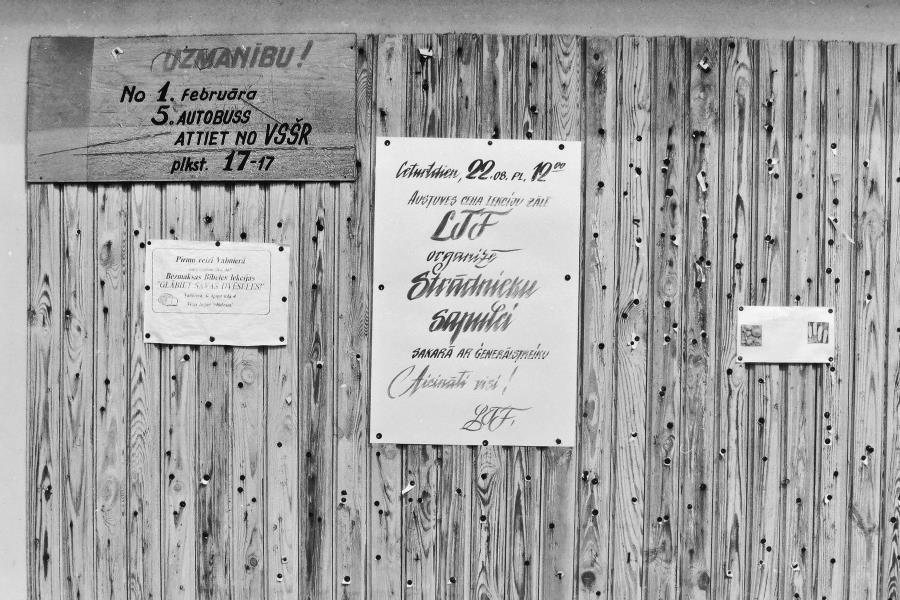 UZMANĪBU!
No 1. februāra
5. AUTOBUSS
ATTIET NO VSŠR
plkst. 17-17
Pirmo reizi Valmierā
Bezmaksas Bībeles lekcijas
"GLĀBIET SAVAS DVĒSELES!"
Ceturtdien, 22.08. Pl. 12⁰⁰
AUSTUVES CEHA LEKCIJU ZĀLĒ
LTF
organizē
Strādnieku
sapulci
SAKARĀ AR ĢENERĀLSTREIKU
Aicināti visi!
LTF.